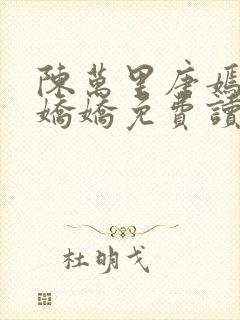 陳萬里唐嫣
嬌嬌免費讀
杜明戈